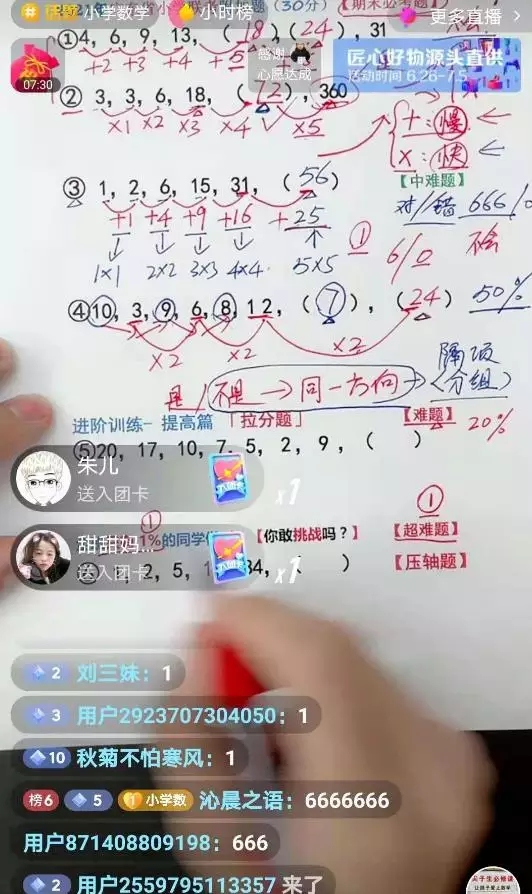 话题 小学数学 小时榜 更多直播 >
小学 (30分) 【期末必考题】
① 4, 6, 9, 13, (18) (24), 31
+2 +3 +4 +5
感谢
心愿达成
匠心好物源头直供
活动时间 6.26-7.5
07:30
② 3, 3, 6, 18, (72), 360
×1 ×2 ×3 ×4 ×5
+:慢
×:快
【中难题】
③ 1, 2, 6, 15, 31, (56)
+1 +4 +9 +16 +25
对/错 666/0
①
6/0
不会
1×1 2×2 3×3 4×4 5×5
④ 10, 3, 9, 6, 8, 12, (7), (24)
50%
×2 ×2 ×2
隔项
是/不是→同一方向→(分组)
进阶训练- 提高篇 「拉分题」 【难题】
20%
⑤ 20, 17, 10, 7, 5, 2, 9, ( )
朱儿
送入团卡
x1
①
1%的同学 【你敢挑战吗?】 ① 【超难题】
甜甜妈...
送入团卡
x1
1, 2, 5, 34, ) 【压轴题】
2 刘三妹：1
3 用户2923707304050：1
10 秋菊不怕寒风：1
榜6 5 1 小学数 沁晨之语：6666666
用户871408809198：666
2 用户2559795113357 来了
尖子生必修课
让孩子爱上数学